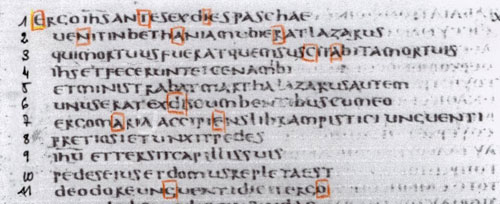 1 ERGOIHSANTESEXDIESPASCHAE
2 UENITINBETHANIAMUBIERATLAZARUS
3 quimortuusfueratquemsuscitabitamortuis
4 ihsetfecerunteicenamibi
5 etministrabatmarthalazarusautem
6 unuseratexdiscumbentibuscumeo
7 ergomariaaccipienslibrampisticiunguenti
8 pretiosietunxitpedes
9 ihuettersitcapillissuis
10 pedeseiusetdomusrepletaest
11 deodoreunguentidicitergo